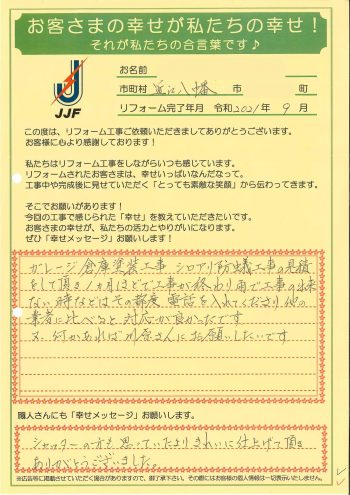 お客さまの幸せが私たちの幸せ！
それが私たちの合言葉です♪
JJF
お名前
市町村 近江八幡 市 町
リフォーム完了年月 令和 2021年 9月
この度は、リフォーム工事ご依頼いただきましてありがとうございます。
お客様に心より感謝しております！
私たちはリフォーム工事をしながらいつも感じています。
リフォームされたお客さまは、幸せいっぱいなんだなって。
工事中や完成後に見せていただく「とっても素敵な笑顔」から伝わってきます。
そこでお願いがあります！
今回の工事で感じられた「幸せ」を教えていただきたいです。
お客さまの幸せが、私たちの活力とやりがいになります。
ぜひ「幸せメッセージ」お願いします！
ガレージ倉庫塗装工事 シロアリ防蟻工事の見積
をして頂き1ヵ月ほどで工事が終わり雨で工事の出来
ない時などはその都度電話を入れてくださり他の
業者に比べると対応が良かったです
又、何かあれば川原さんにお願いしたいです
職人さんにも「幸せメッセージ」お願いします。
シャッターの方も思っていたよりきれいに仕上げて頂き
ありがとうございました。
※広告等に掲載させていただく場合がありますので、御了承下さい。その際にはお客様の個人情報は一切表示いたしません。